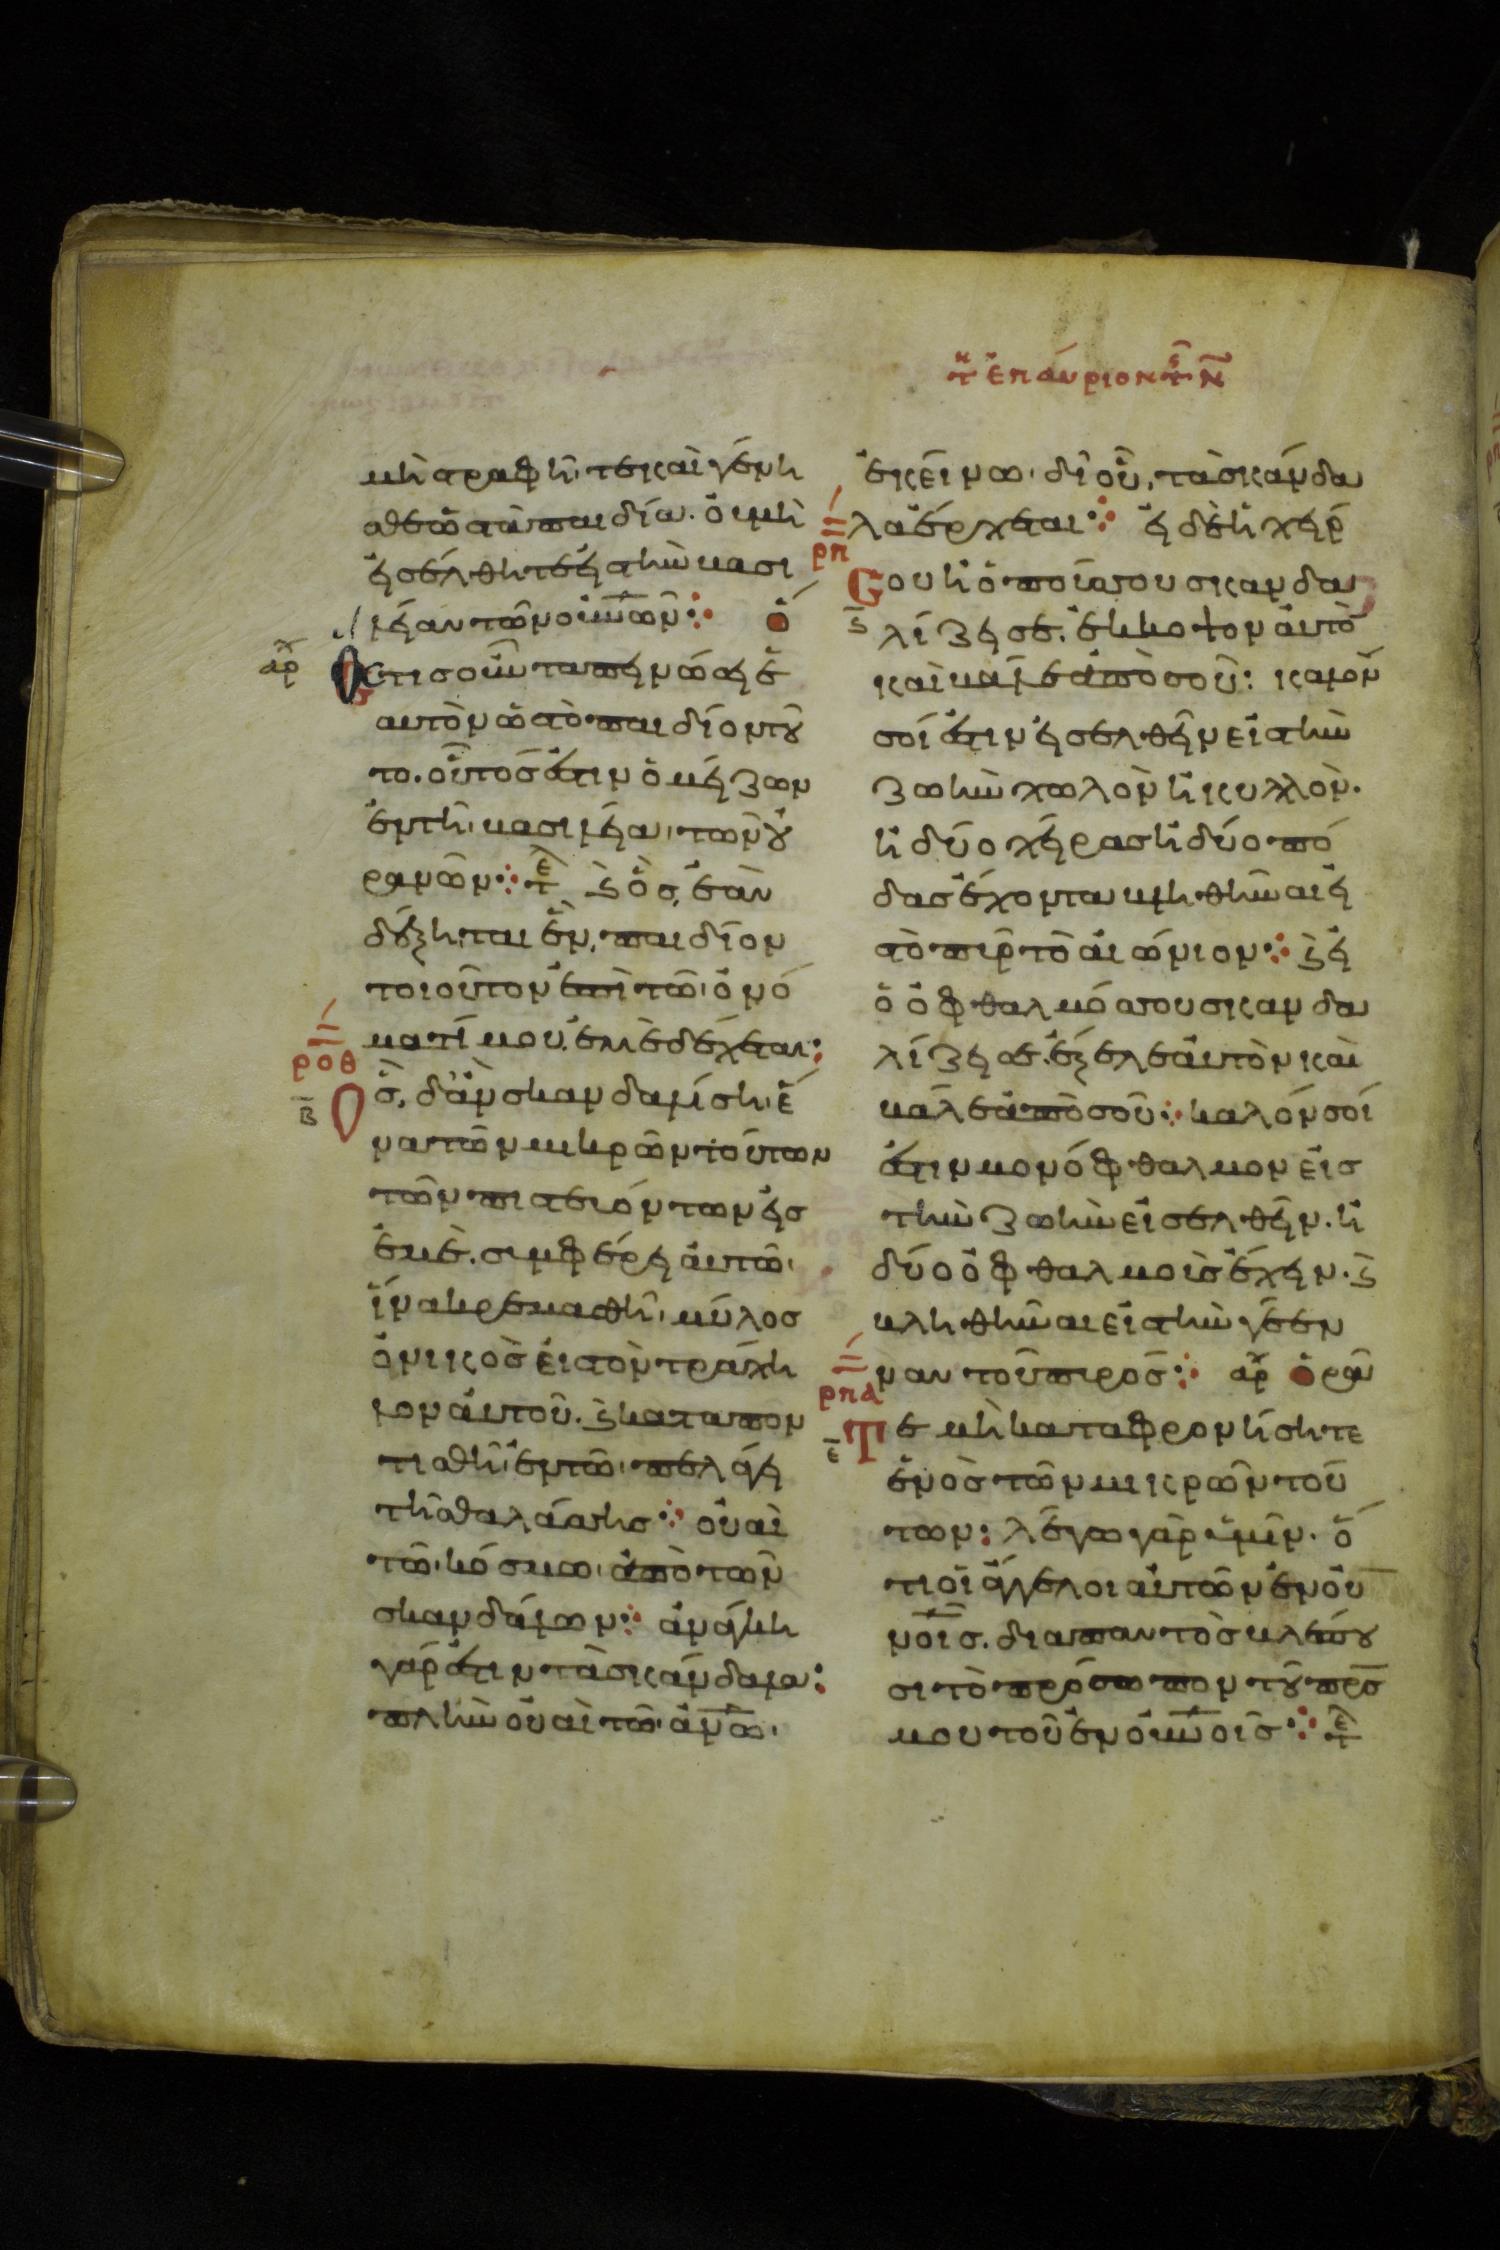 τῇ ἐπαύριον τῆς Ν
μὴ στραφῆτε καὶ γένη
σθε ὡς τὰ παιδία. οὐ μὴ
εἰσέλθητε εἰς τὴν βασι
λείαν τῶν οὐνῶν ⁘ ὅ
ἀρχ
στις οὖν ταπεινώσει ἑ
αυτὸν ὡς τὸ παιδίον τοῦ
το. οὗτός ἐστιν ὁ μείζων
ἐν τῆ βασιλεία τῶν οὐ
ρανῶν ⁘ τελ ϗ ὃς ἐὰν
δέξηται ἓν παιδίον
τοιοῦτον ἐπὶ τῶ ὀνό
ματί μου. ἐμὲ δέχεται:
ροθ
Β
Ὃς δ' ἂν σκανδαλίση ἕ
να τῶν μικρῶν τούτων
τῶν πιστευόντων εἰς
ἐμὲ. συμφέρει αὐτῶ
ἵνα κρεμασθῆ μύλος
ὀνικὸς εἰς τὸν τράχη
λον αὐτοῦ. ϗ καταπον
τισθῆ ἐν τῶ πελάγει
τῆς θαλάσσης ⁘ οὐαὶ
τῶ κόσμω ἀπὸ τῶν
σκανδάλων ⁘ ἀνάγκη
γάρ ἐστιν τὰ σκάνδαλα:
πλὴν οὐαὶ τῶ ἀνω
ἐκείνω δι οὗ τὰ σκάνδα
λα ἔρχεται ⁘ εἰ δὲ ἡ χείρ
ρπ
ς
Σου ἢ ὁ πούς σου σκανδα
λίζει σε. ἔκκοψον αὐτὸ
καὶ βάλε ἀπὸ σοῦ: καλόν
σοί ἐστιν εἰσελθεῖν εἰς τὴν
ζωὴν χωλὸν ἢ κυλλὸν.
ἢ δύο χεῖρας ἢ δύο πό
δας ἔχοντα βληθῆναι εἰς
τὸ πῦρ τὸ αἰώνιον ⁘ ϗ εἰ
ὁ ὀφθαλμός σου σκανδα
λίζει σε. ἔξελε αὐτὸν καὶ
βάλε ἀπὸ σοῦ ⁘ καλόν σοί
ἐστιν μονόφθαλμον εἰς
τὴν ζωὴν εἰσελθεῖν. ἢ
δύο ὀφθαλμοὺς ἔχειν. ϗ
βληθῆναι εἰς τὴν γέεν
ναν τοῦ πυρός ⁘ ἀρχ ὁρᾶ
ρπα
ε
Τε μὴ καταφρονήσητε
ἑνὸς τῶν μικρῶν τού
των: λέγω γὰρ ὑμῖν. ὅ
τι οἱ ἄγγελοι αὐτῶν ἐν οὐ
νοῖς. διαπαντὸς βλέπου
σι τὸ πρόσωπον τοῦ πρς
μου τοῦ ἐν οὐνοῖς ⁘ τελ